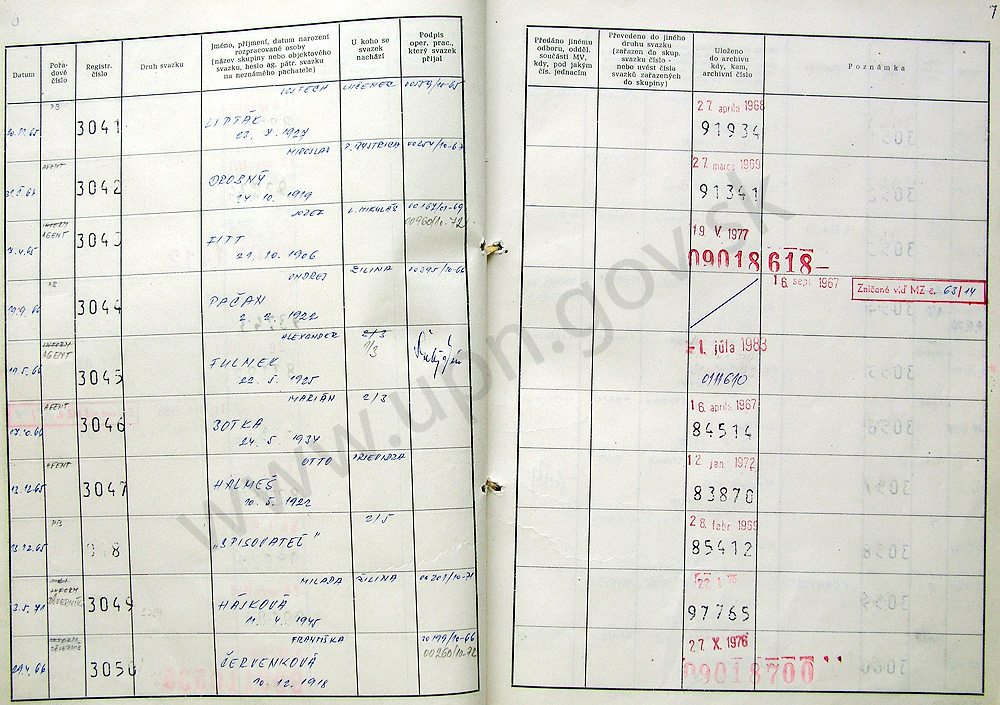 7
Datum
Pořadové číslo
Registr. číslo
Druh svazku
Jméno, příjmení, datum narození
rozpracované osoby
(název skupiny nebo objektového
svazku, heslo ag. pátr. svazku
na neznámého pachatele)
U koho se
svazek
nachází
Podpis
oper. prac.,
který svazek
přijal
Předáno jinému
odboru, odděl.
součásti MV,
kdy, pod jakým
čís. jednacím
Převedeno do jiného
druhu svazku
(zařazen do skup.
svazku číslo -
nebo uvést čísla
svazků zařazených
do skupiny)
Uloženo
do archivu
kdy, kam,
archivní číslo
Poznámka
3041
VOJTECH
LIPTÁK
LUČENEC
27. apríla 1968
91934
AGENT
3042
MIROSLAV
DROBNÝ
14. 10. 1919
B. BYSTRICA
27. marca 1969
91341
AGENT
3043
JOZEF
FITT
21. 10. 1906
L. MIKULÁŠ
00960/10-72
19. V. 1977
09018618
19.9.66
3044
ONDREJ
PAČAN
2. 2. 1922
ŽILINA
00395/10-66
16. sept. 1967
Zničené viď MZ č. 63/14
19.5.66
INFORM
AGENT
3045
ALEXANDER
FULMEK
22. 5. 1925
2/3
1/3
-1. júla 1983
011610
07.10.66
AGENT
3046
MARIÁN
BOTKA
24. 5. 1934
2/3
16. apríla 1967
84514
13.12.65
AGENT
3047
OTTO
HALMEŠ
10. 5. 1922
PRIEVIDZA
12. jan. 1972
83870
13.12.65
8
„SPISOVATEĽ"
2/5
28. febr. 1969
85412
3.5.71
INFORM
DÔVERNÍK
3049
MILADA
HÁJKOVÁ
11. 4. 1945
ŽILINA
00201/10-71
97765
29.4.66
DÔVERNÍK
3050
FRANTIŠKA
ČERVENKOVÁ
10. 12. 1918
00260/10-72
27. X. 1976
09018700
www.upn.gov.sk